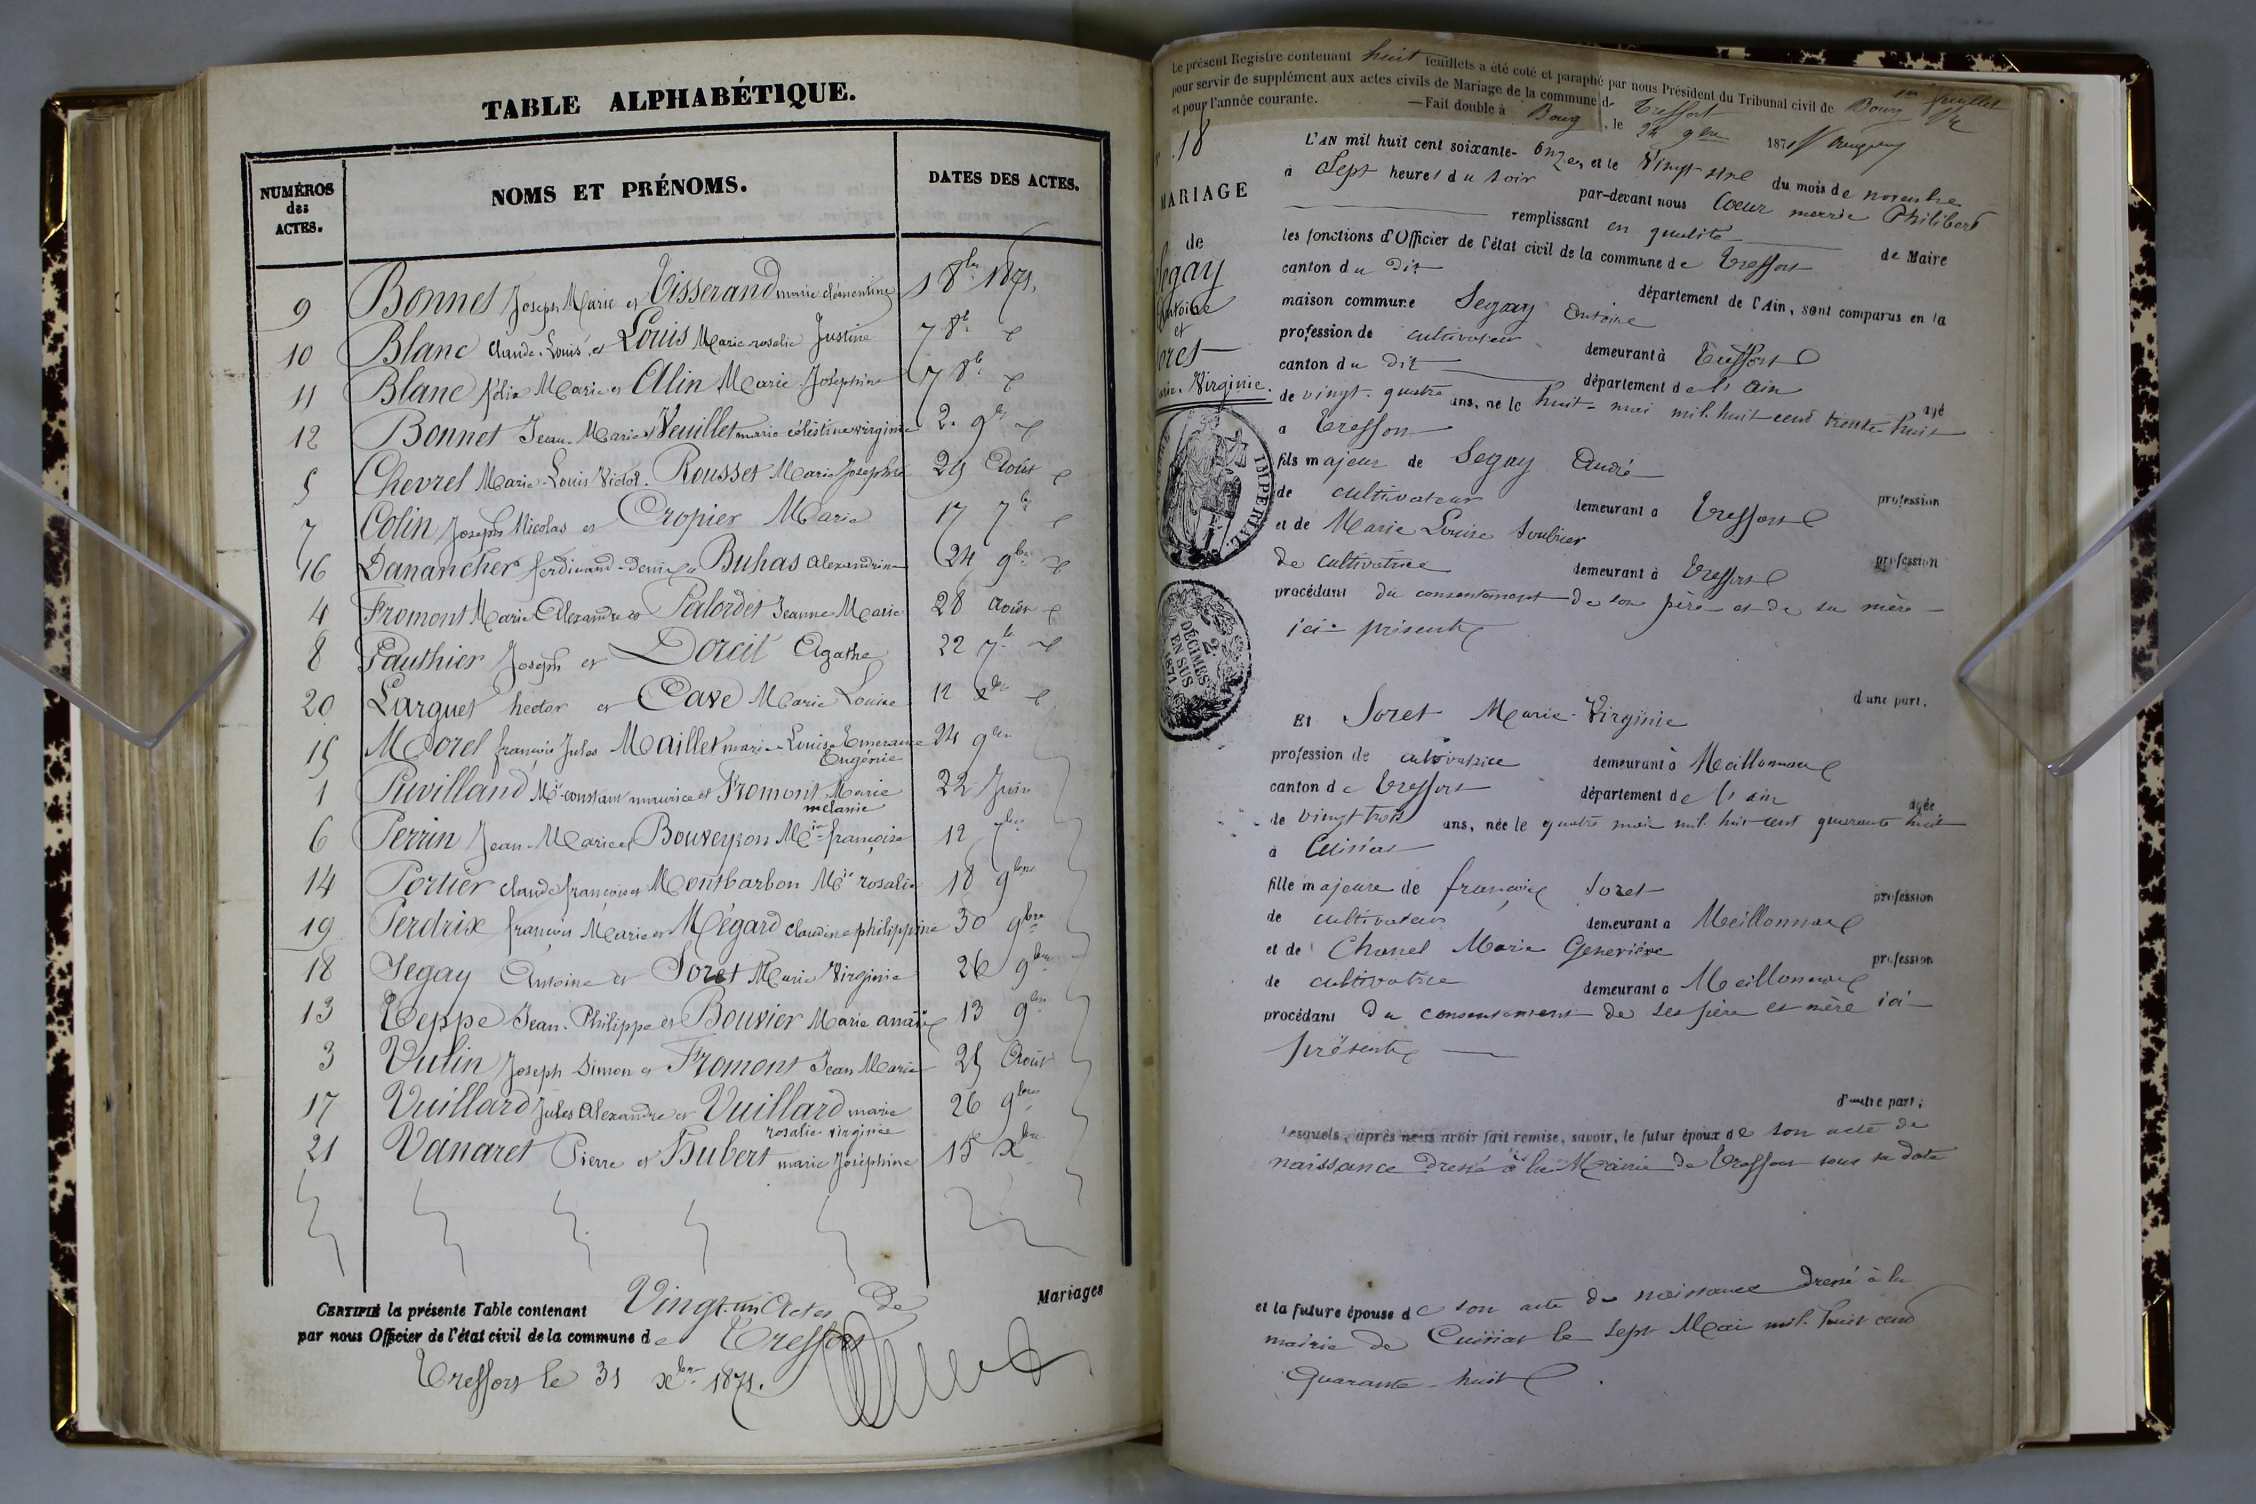 TABLE ALPHABÉTIQUE.
NUMÉROS des ACTES. NOMS ET PRÉNOMS. DATES DES ACTES.
9 Bonnet Joseph Marie et Tisserand marie clémentine 1 8bre 1871.
10 Blanc Claude-Louis et Louis Marie rosalie Justine 7 8b
11 Blanc félix Marie et Alin Marie Joséphine 7 8b
12 Bonnet Jean-Marie et Veuillet marie célestine virginie 2 9b
5 Chevrel Marie-Louis Victor Rousset Marie Josephte 29 Août
7 Colin Joseph Nicolas et Cropier Marie 17 7b
16 Danancher ferdinand-denis et Buhas Alexandrine 24 9bre
4 Fromont Marie Alexandre et Palordet Jeanne Marie 28 août
8 Gauthier Joseph et Dorcil Agathe 22 7b
20 Larguet hector et Cave Marie Louise 12 xbre
15 Morel françois Jules Maillet marie-Louise Emerance Eugénie 24 9bre
1 Puvilland Mie constant maurice et Fromont Marie mélanie 22 Juin
6 Perrin Jean-Marie et Bouveyron Mie françoise 12 7bre
14 Portier claude françois et Montbarbon Mie rosalie 18 9bre
19 Perdrix françois Marie et Mégard claudine philippine 30 9bre
18 Segay Antoine et Soret Marie Virginie 26 9bre
13 Teppe Jean-Philippe et Bouvier Marie anaïs 13 9bre
3 Vulin Joseph Simon et Fromont Jean Marie 25 Août
17 Vuillard Jules Alexandre et Vuillard marie rosalie virginie 26 9bre
21 Vanaret Pierre et Hubert marie Joséphine 15 xbre
CERTIFIÉ la présente Table contenant Vingt-un Actes de Mariages
par nous Officier de l'état civil de la commune de Treffort
Treffort le 31 xbre 1871.
Le présent Registre contenant huit feuillets a été coté et paraphé par nous Président du Tribunal civil de Bourg
pour servir de supplément aux actes civils de Mariage de la commune de Treffort
et pour l'année courante. — Fait double à Bourg, le 24 9bre 1871
1er feuillet
18
MARIAGE
de
Segay
Antoine
et
Soret
Marie-Virginie.
IMPERIAL
2 DÉCIMES EN SUS 1871
L'AN mil huit cent soixante-onze, et le Vingt-six du mois de novembre
à Sept heures du soir par-devant nous Coeur marie Philibert
remplissant en qualité de Maire
les fonctions d'Officier de l'état civil de la commune de Treffort
canton du dit département de l'Ain, sont comparus en la
maison commune Segay Antoine
profession de cultivateur demeurant à Treffort
canton du dit département de l'ain
âgé
de vingt-quatre ans, né le huit mai mil huit cent trente-huit
à Treffort
fils majeur de Segay André profession
de cultivateur demeurant à Treffort
et de Marie Louise Soubier profession
de cultivatrice demeurant à Treffort
procédant du consentement de son père et de sa mère
ici présents
d'une part.
Et Soret Marie-Virginie
profession de cultivatrice demeurant à Meillonnas
canton de Treffort département de l'ain âgée
de vingt trois ans, née le quatre mai mil huit cent quarante huit
à Cuisiat
fille majeure de françois Soret profession
de cultivateur demeurant à Meillonnas
et de Chanel Marie Geneviève profession
de cultivatrice demeurant à Meillonnas
procédant du consentement de ses père et mère ici
présents
d'autre part;
Lesquels, après nous avoir fait remise, savoir, le futur époux de son acte de
naissance dressé à la Mairie de Treffort sous sa date
et la future épouse de son acte de naissance dressé à la
mairie de Cuisiat le sept Mai mil huit cent
quarante-huit